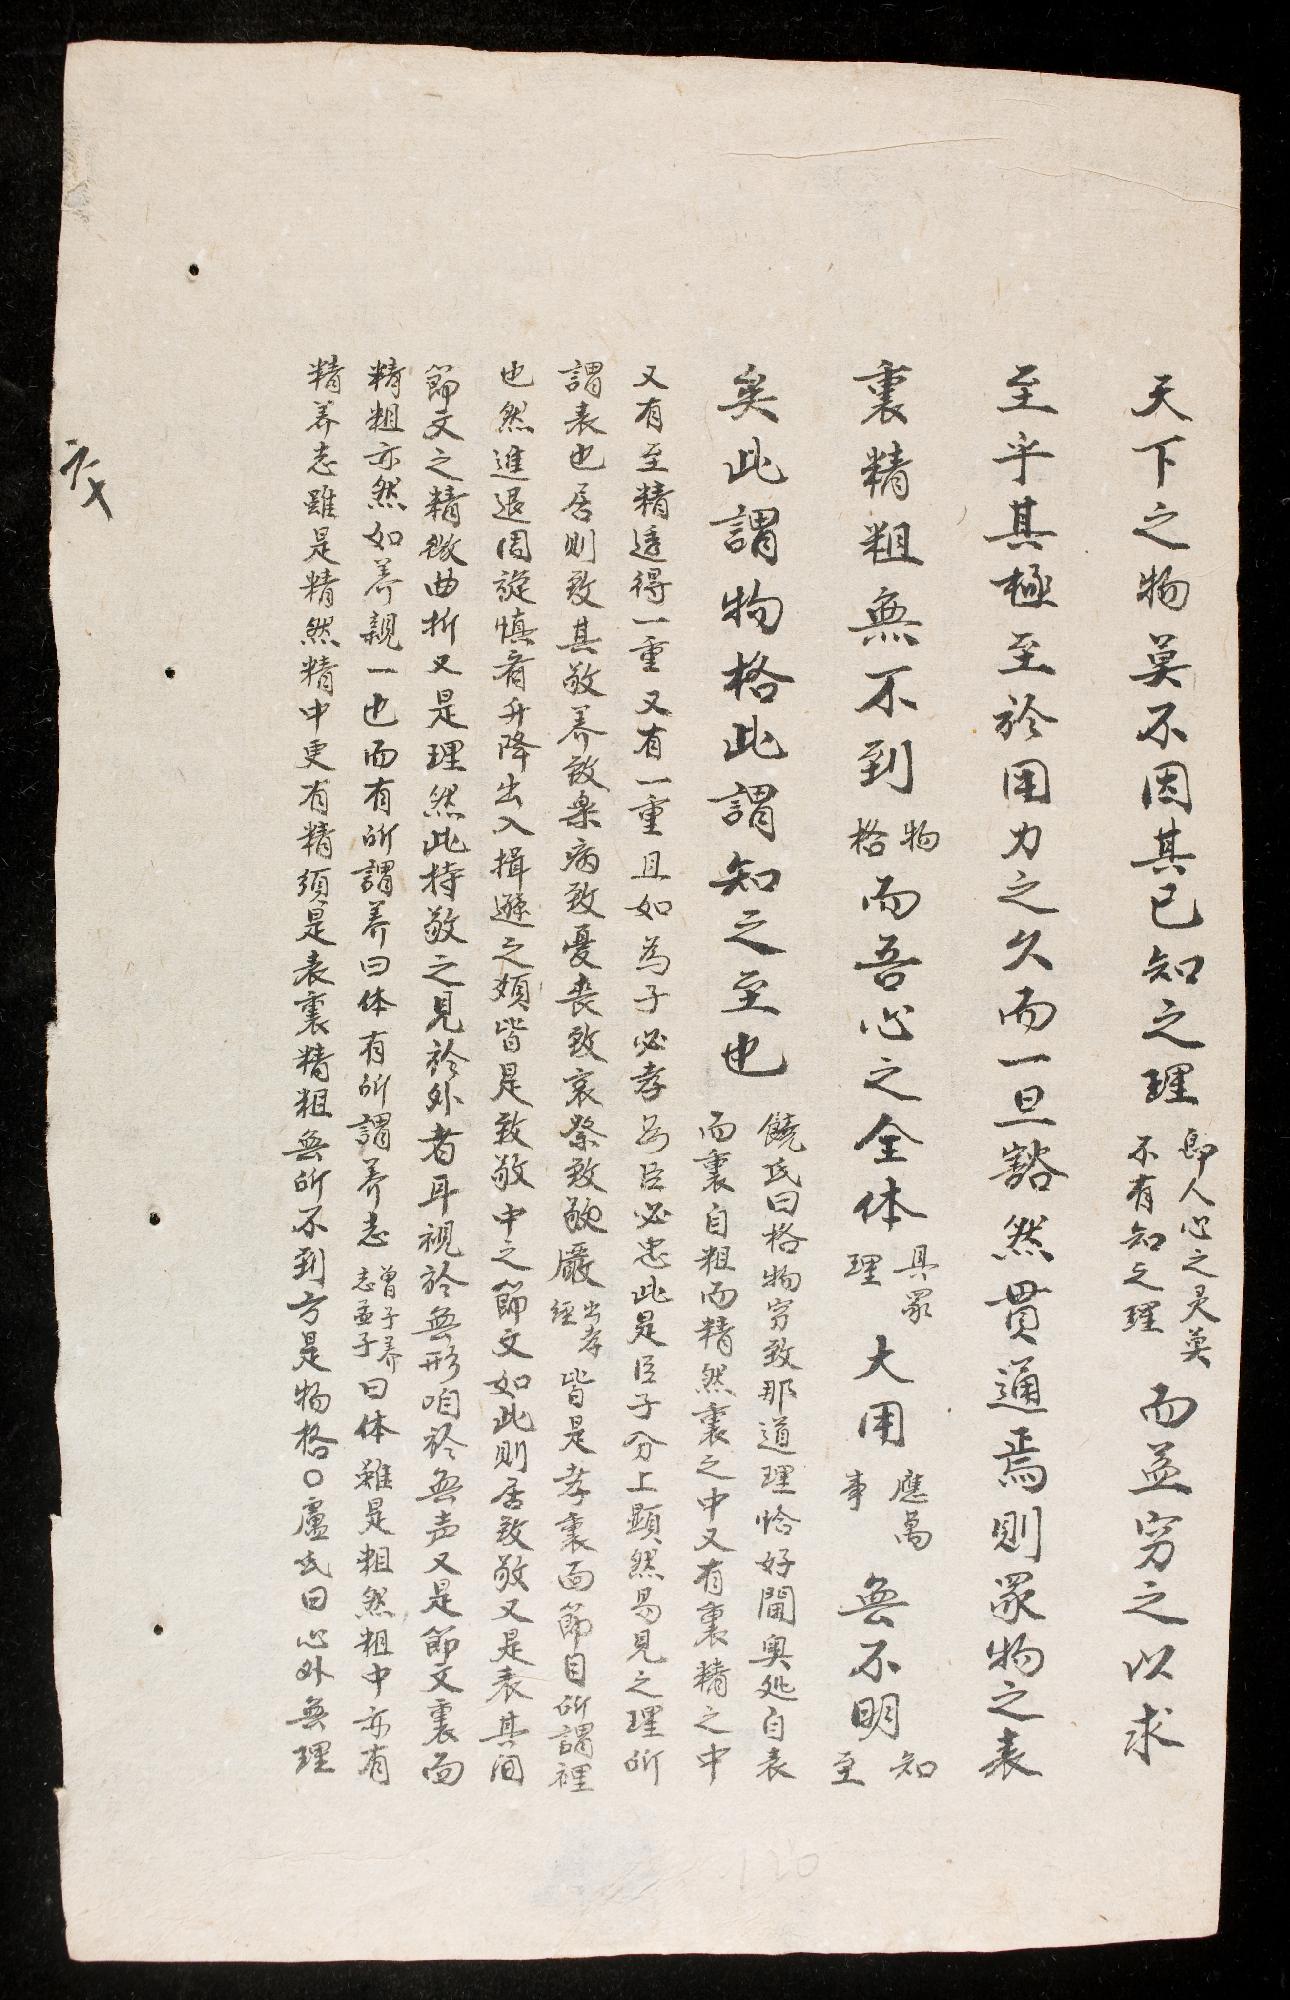 天下之物莫不因其已知之理即人心之灵莫不有知之理而益穷之以求
至乎其極至於用力之久而一旦豁然贯通焉則眾物之表
裏精粗無不到物格而吾心之全体具眾理大用應萬事無不明知至
矣此謂物格此謂知之至也饒氏曰格物穷致那道理恰好閫奥処自表而裏自粗而精然裏之中又有裏精之中
又有至精透得一重又有一重且如為子必孝為臣必忠此是臣子分上顕然易見之理所
謂表也居則致其敬养致楽病致憂喪致哀祭致敬嚴出孝經皆是孝裏面節目所謂裡
也然進退周旋慎齊升降出入揖遜之類皆是致敬中之節文如此則居致敬又是表其间
節文之精微曲折又是理然此持敬之見於外者耳視於無形听於無声又是節文裏面
精粗亦然如养親一也而有所謂养曰体有所謂养志曾子养志孟子曰体雖是粗然粗中亦有
精养志雖是精然精中更有精须是表裏精粗無所不到方是物格○盧氏曰心外無理
六十
120